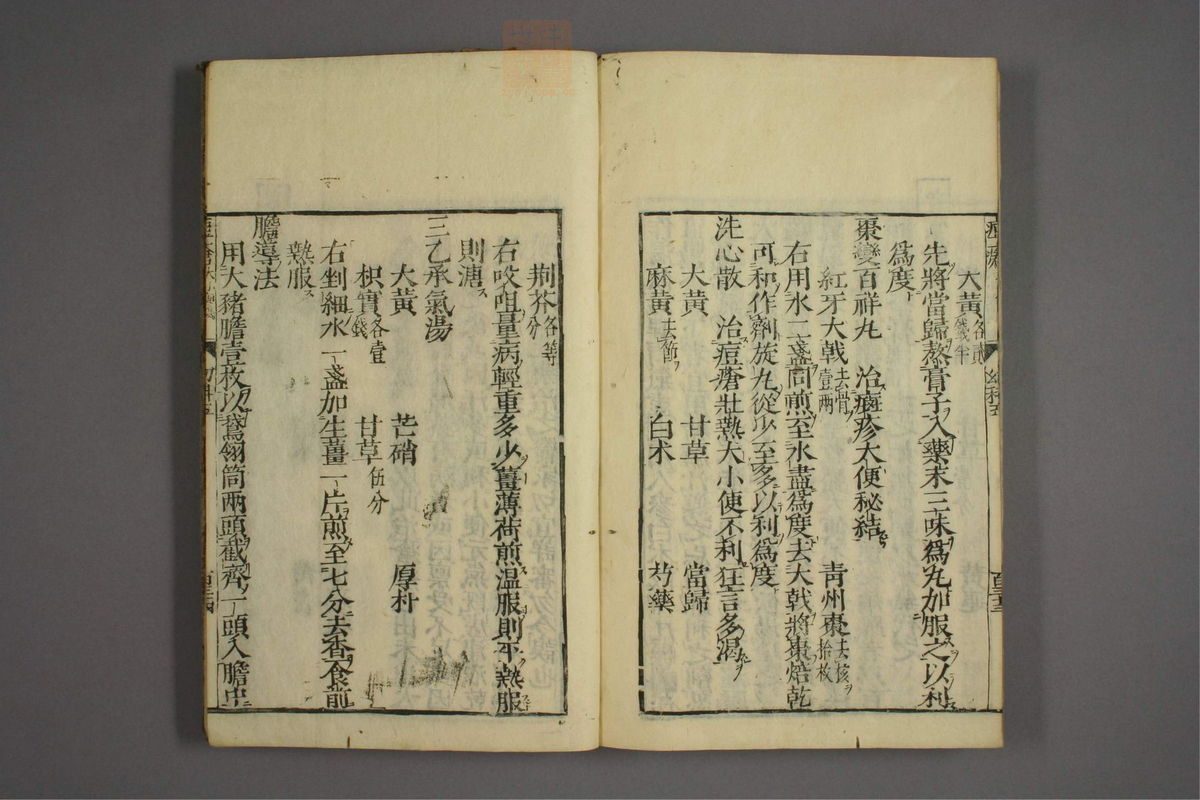 大黃各貳錢半
先將當歸熬膏子入藥末三味爲丸加服之以利
爲度
棗變百祥丸　治瘢疹大便秘結
紅牙大戟去骨壹兩　青州棗去核拾枚
右用水二盞同煎至水盡爲度去大戟將棗焙乾
可和作劑旋丸從少至多以利爲度
洗心散　治痘瘡壯熱大小便不利狂言多渴
大黃　甘草　當歸
麻黃去節　白朮　芍藥
荆芥各等分
右㕮咀量病輕重多少薑薄荷煎溫服則平熱服
則溏
三乙承氣湯
大黃　芒硝　厚朴
枳實各壹錢　甘草伍分
右剉細水一盞加生薑二片煎至七分去香食前
熱服
膽導法
用大豬膽壹枚以鵞翎筒兩頭截齊一頭入膽中